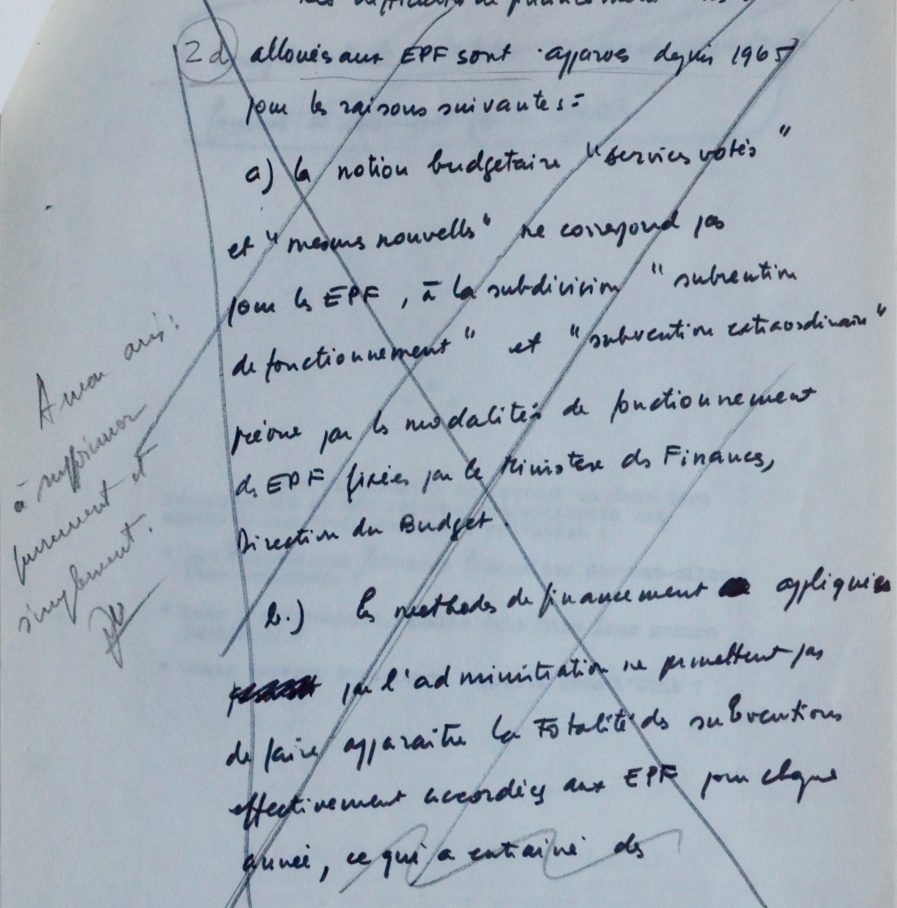 2d
allouésaux EPF sont apparues depuis 1965
pour les raisons suivantes:
a) la notion budgetaire "services votés"
et "mesures nouvelles" ne correspond pas
pour les EPF, à la subdivision "subvention
de fonctionnement" et "subvention extraordinaire"
prévue par les modalités de fonctionnement
des EPF fixées par le Ministère des Finances,
Direction du Budget.
b.) les methodes de financement appliquées
par l'administration ne permettent pas
de faire apparaître la Totalité des subventions
effectivement accordées aux EPF pour chaque
année, ce qui a entrainé des
A mon avis:
à supprimer
purement et
simplement.